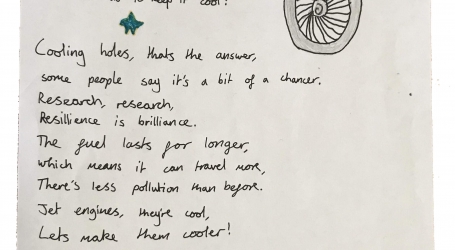 to keep it cool?
Cooling holes, thats the answer,
some people say it's a bit of a chancer.
Research, research,
Resillience is brilliance.
The fuel lasts for longer,
which means it can travel more,
There's less pollution than before.
Jet engines, they're cool,
Lets make them cooler!